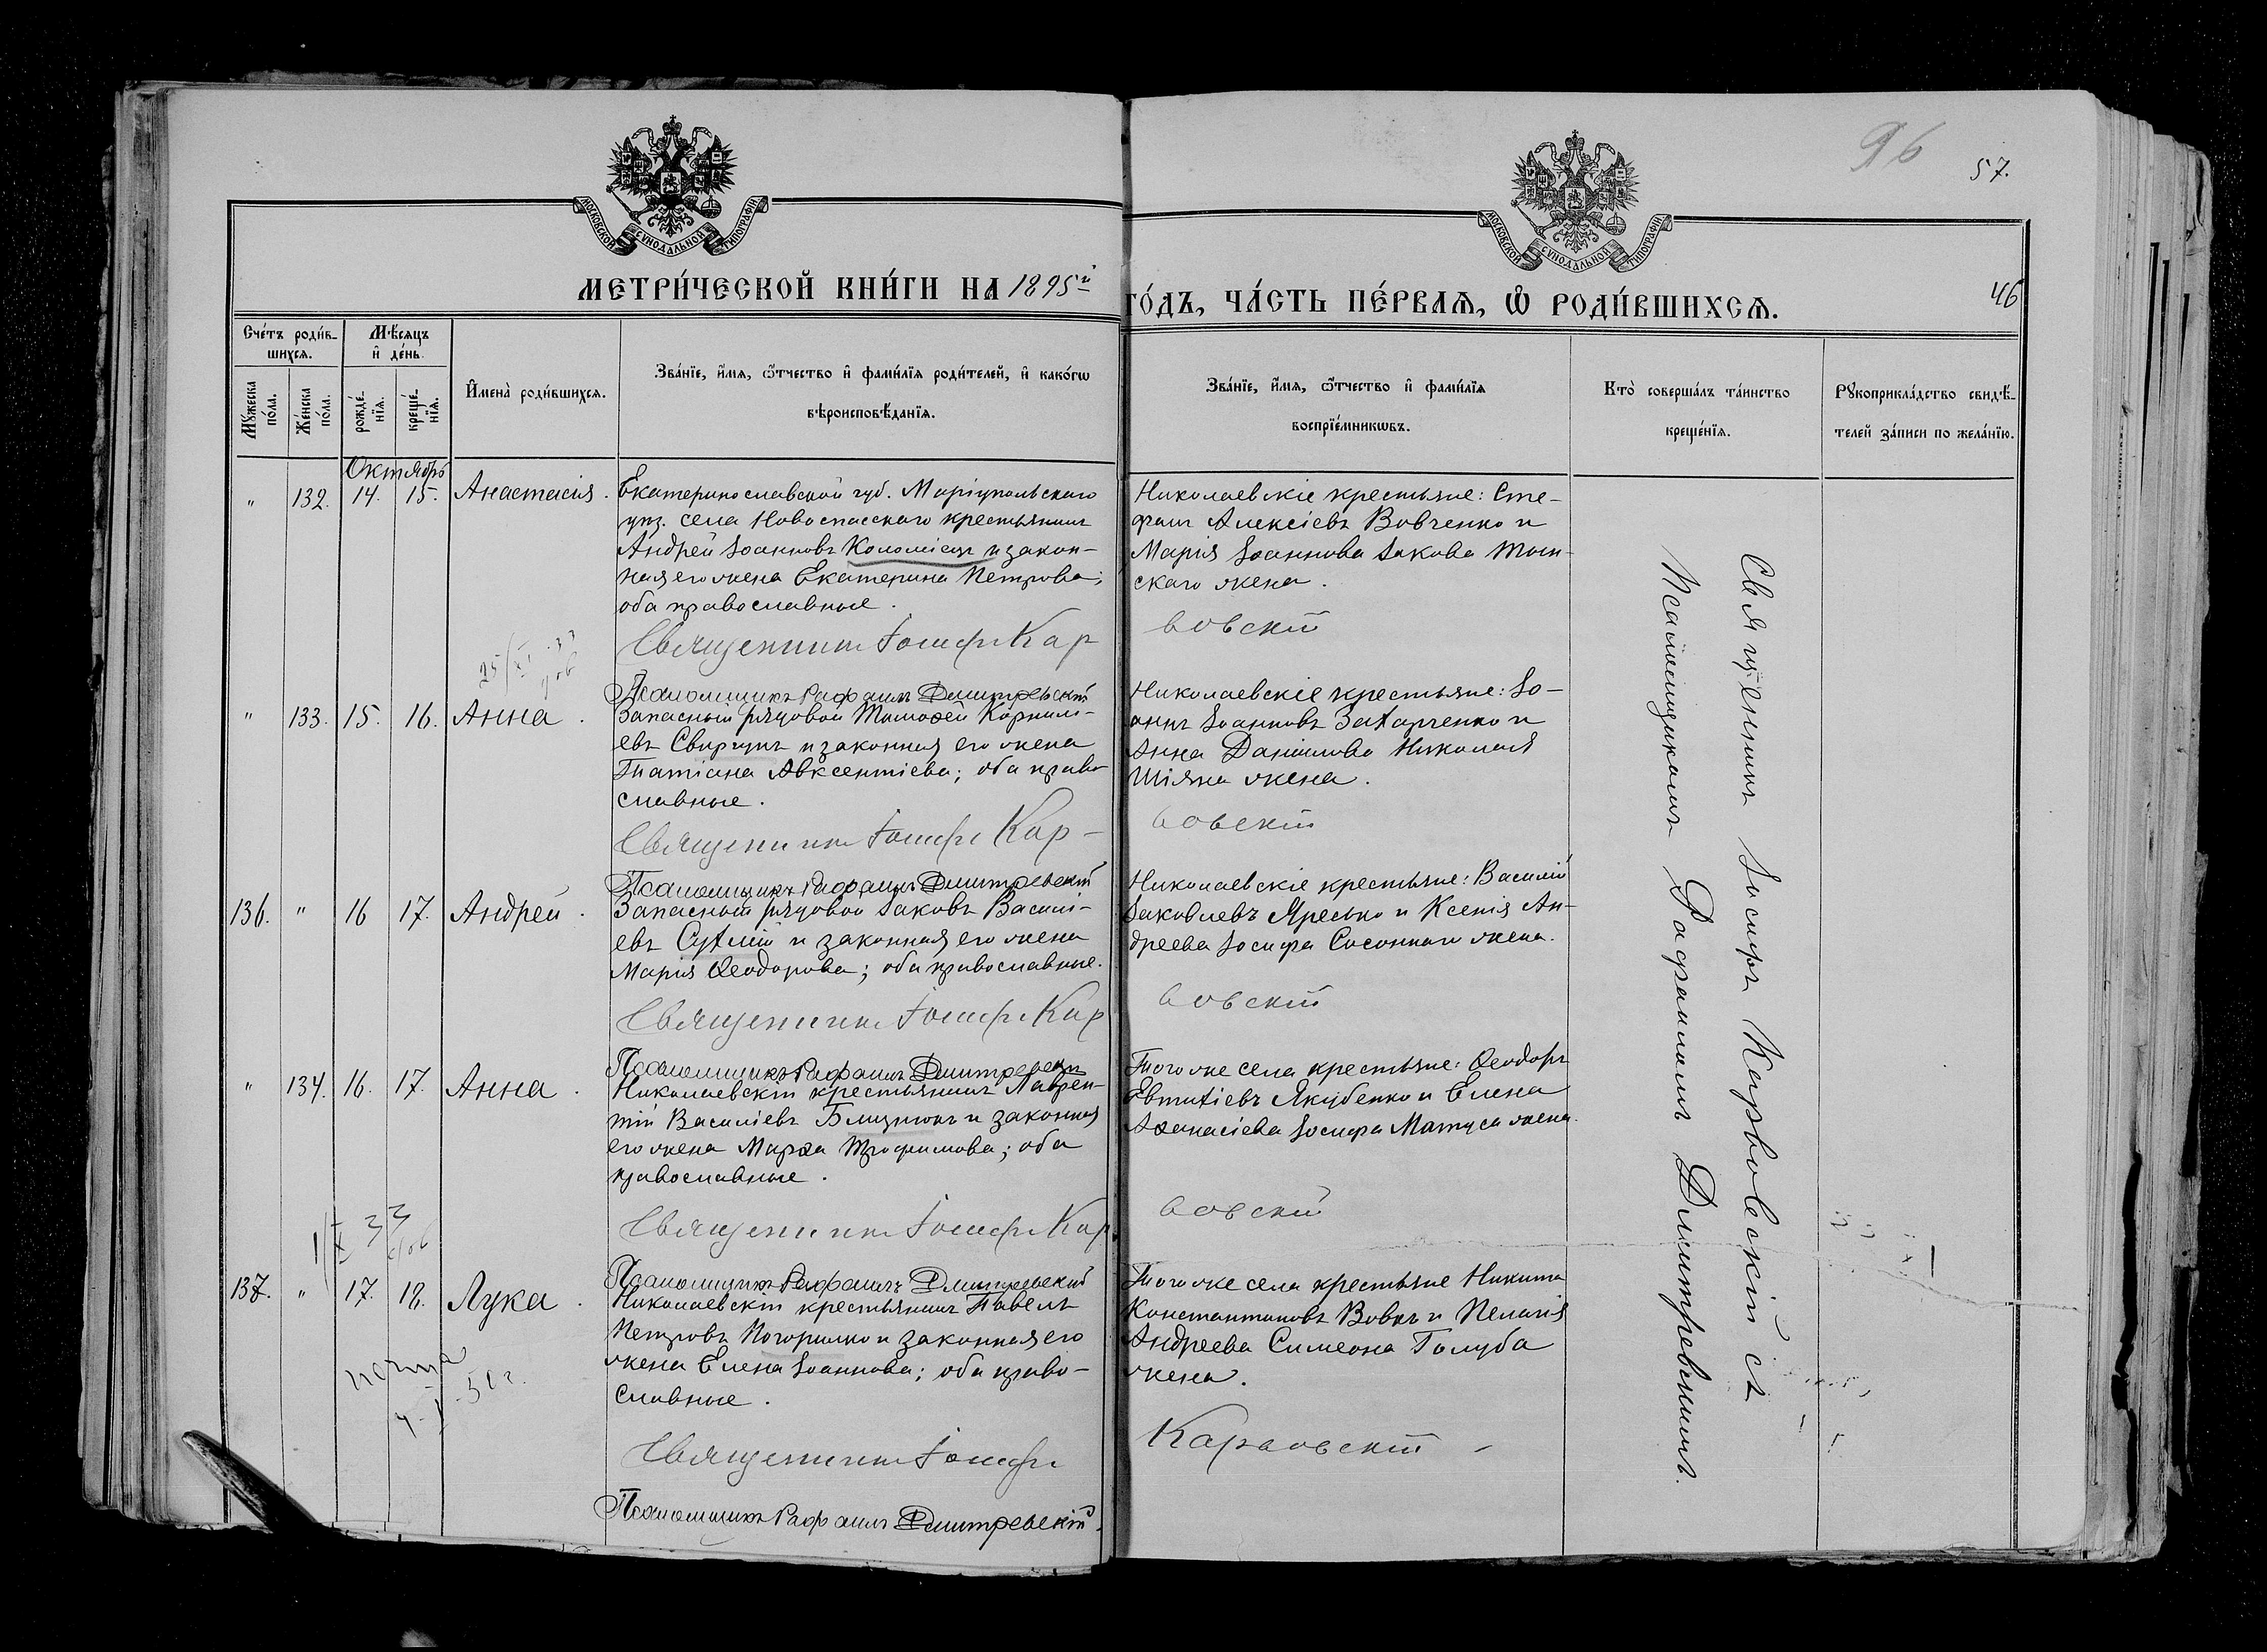 96
57.
46
МОСКОВСКОЙ СѴНОДАЛЬНОЙ ТИПОГРАФІИ
МОСКОВСКОЙ СѴНОДАЛЬНОЙ ТИПОГРАФІИ
МЕТРИ́ЧЕСКОЙ КНИ́ГИ НА 1895й
ГО́ДЪ, ЧА́СТЬ ПЕ́РВАѦ, Ѡ҆ РОДИ́ВШИХСѦ.
Сче́тъ роди́в-
шихсѧ.
Мѣ́сѧцъ
и҆ де́нь.
Мꙋ́жеска
по́ла.
Же́нска
по́ла.
рожде́-
нїѧ.
креще́-
нїѧ.
И҆мена̀ роди́вшихсѧ.
Зва́нїе, и҆́мѧ, ѻ҆́тчество и҆ фами́лїѧ роди́телей, и҆ како́гѡ
вѣроисповѣ́данїѧ.
Зва́нїе, и҆́мѧ, ѻ҆́тчество и҆ фами́лїѧ
воспрїе́мникѡвъ.
Кто̀ соверша́лъ та́инство
креще́нїѧ.
Рꙋкоприкла́дство свидѣ́-
телей за́писи по жела́нїю.
Октябрь
" 132. 14. 15. Анастасія.
Екатеринославской губ. Маріупольскаго
уѣз. села Новоспасскаго крестьянинъ
Андрей Іоанновъ Коломіецъ и закон-
ная его жена Екатерина Петрова;
оба православные.
Николаевскіе крестьяне: Сте-
фанъ Алексіевъ Вовченко и
Марія Іоаннова Іакова Том-
скаго жена.
Священникъ Іосифъ Кар
вовскій
Псаломщикъ Рафаилъ Димитревскій
" 133. 15. 16. Анна.
Запасный рядовой Тимоѳей Корнилі-
евъ Свиргунъ и законная его жена
Татіана Авксентіева; оба право-
славные.
Николаевскіе крестьяне: Іо-
аннъ Іоанновъ Захарченко и
Анна Даніилова Николая
Шіяна жена.
Священникъ Іосифъ Кар-
вовскій
Псаломщикъ Рафаилъ Димитревскій
136. " 16 17. Андрей.
Запасный рядовой Іаковъ Василі-
евъ Сухлій и законная его жена
Марія Ѳеодорова; оба православные.
Николаевскіе крестьяне: Василій
Іаковлевъ Яресько и Ксенія Ан-
дреева Іосифа Сосоннаго жена.
Священникъ Іосифъ Кар
вовскій
Псаломщикъ Рафаилъ Димитревскій
" 134. 16. 17. Анна.
Николаевскій крестьянинъ Лаврен-
тій Василіевъ Близнюкъ и законная
его жена Марѳа Трофимова; оба
православные.
Того же села крестьяне: Ѳеодоръ
Евтихіевъ Якубенко и Елена
Аѳанасіева Іосифа Матуса жена.
Священникъ Іосифъ Кар
вовскій
Псаломщикъ Рафаилъ Димитревскій
137. " 17. 18. Лука.
Николаевскій крестьянинъ Павелъ
Петровъ Погорилко и законная его
жена Елена Іоаннова; оба право-
славные.
Того же села крестьяне Никита
Константиновъ Вовкъ и Пелагія
Андреева Симеона Голуба
жена.
Священникъ Іосифъ
Карвовскій
Псаломщикъ Рафаилъ Димитревскій.
Священникъ Іосифъ Карвовскій съ
Псаломщикомъ Рафаиломъ Димитревскимъ.